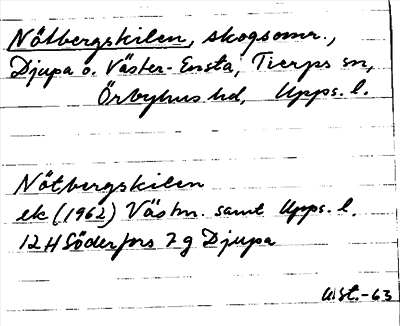 Nötbergskilen, skogsomr.,
Djupa o. Väster-Ensta, Tierps sn,
Örbyhus hd, Upps. l.
Nötbergskilen
ek (1962) Västm. samt Upps. l.
12H Söderfors 7g Djupa
U.St.-63